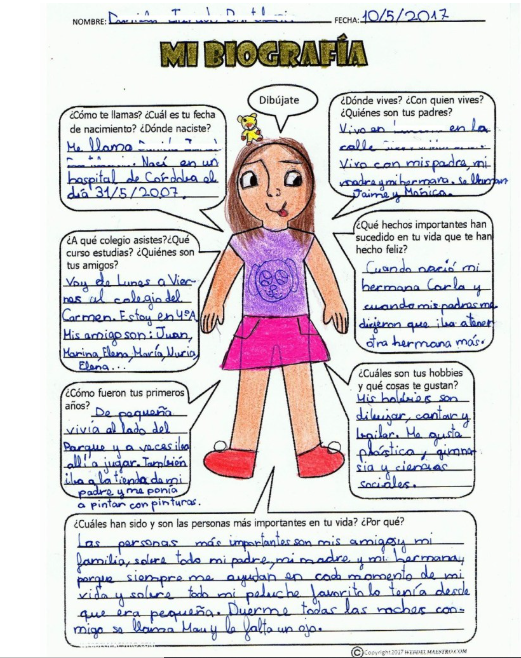 NOMBRE:
FECHA: 10/5/2017
MI BIOGRAFÍA
¿Cómo te llamas? ¿Cuál es tu fecha
de nacimiento? ¿Dónde naciste?
Me llamo
Nací en un
hospital de Córdoba el
día 31/5/2007.
Dibújate
¿Dónde vives? ¿Con quien vives?
¿Quiénes son tus padres?
Vivo en en la
calle
Vivo con mis padre, mi
madre y mi hermana. se llaman
Jaime y Mónica.
¿A qué colegio asistes?¿Qué
curso estudias? ¿Quiénes son
tus amigos?
Voy de Lunes a Vier-
nes al colegio del
Carmen. Estoy en 4ºA
Mis amigo son: Juan,
Marina, Elena, María, Nuria,
Elena...
¿Qué hechos importantes han
sucedido en tu vida que te han
hecho feliz?
Cuando nació mi
hermana Carla y
cuando mis padres me
dijeron que iba a tener
otra hermana más.
¿Cómo fueron tus primeros
años? De pequeña
vivía al lado del
Parque y a veces iba
allí a jugar. También
iba a la tienda de mi
padre y me ponía
a pintar con pinturas.
¿Cuáles son tus hobbies
y qué cosas te gustan?
Mis hobbies son
dibujar, cantar y
bailar. Me gusta
plástica, gimna-
sia y ciencias
sociales.
¿Cuáles han sido y son las personas más importantes en tu vida? ¿Por qué?
Las personas más importantes son mis amigos y mi
familia, sobre todo mi padre, mi madre y mi hermana,
porque siempre me ayudan en cada momento de mi
vida y sobre todo mi peluche favorito lo tenía desde
que era pequeña. Duerme todas las noches con-
migo se llama Mau y le falta un ojo.
Copyright 2017